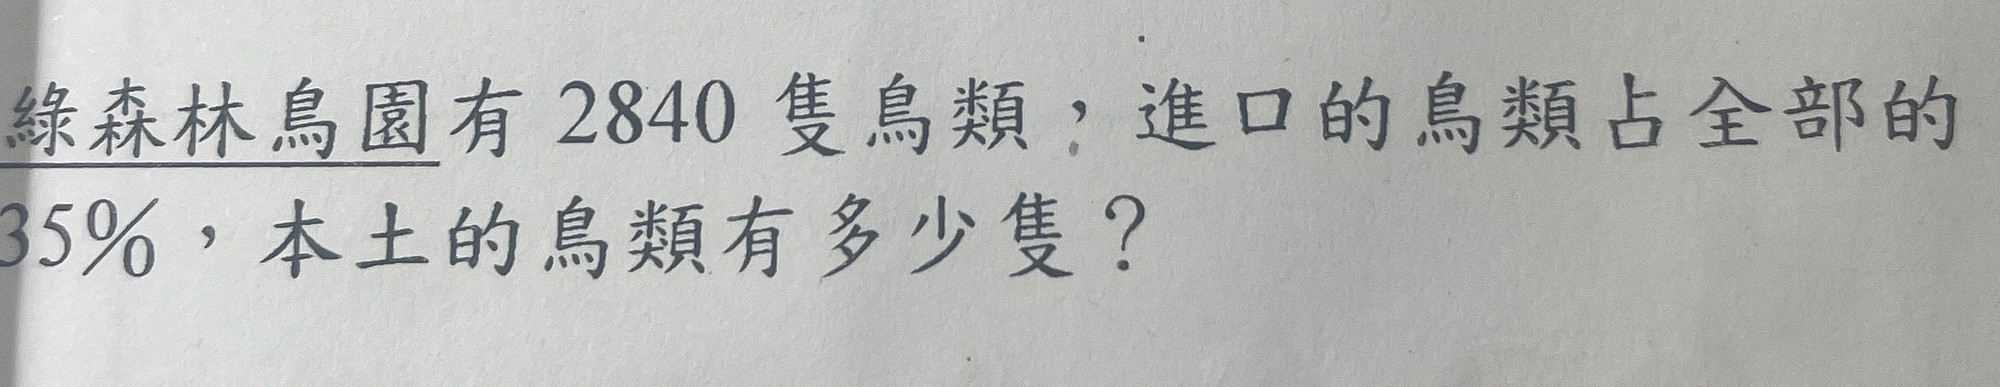 綠森林鳥園有 2840 隻鳥類，進口的鳥類占全部的
35%，本土的鳥類有多少隻？